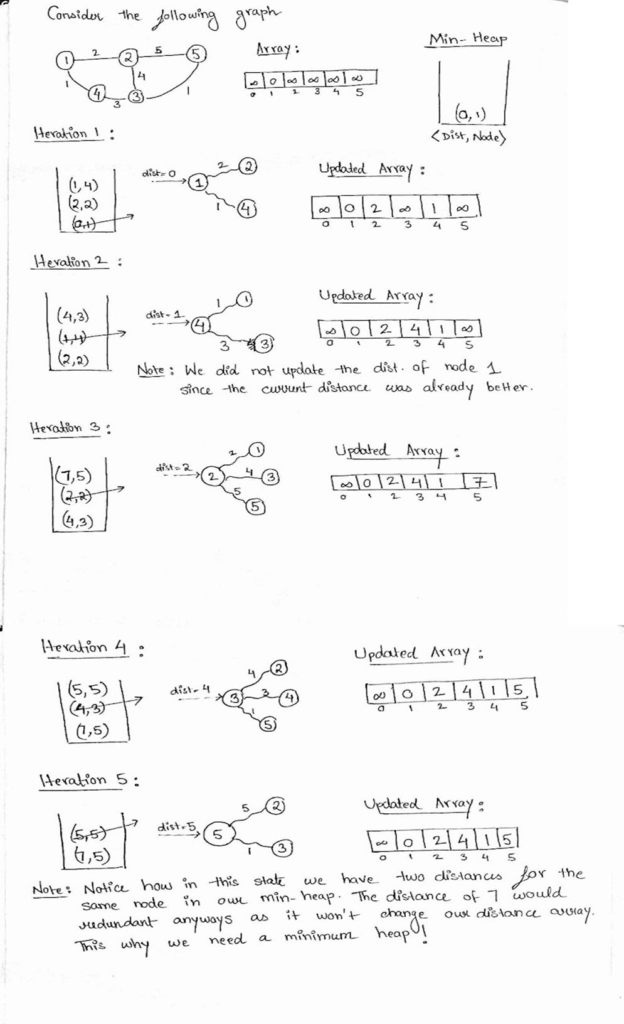 Consider the following graph
Array:
Min-Heap
1 2 2 5 5
1 4 4 3 3 1
∞ 0 ∞ ∞ ∞ ∞
0 1 2 3 4 5
(0,1)
<Dist, Node>
Iteration 1:
(1,4)
(2,2)
(0,1)
dist=0
1 2 2
1 4
Updated Array:
∞ 0 2 ∞ 1 ∞
0 1 2 3 4 5
Iteration 2:
(4,3)
(1,4)
(2,2)
dist=1
4 1 1
3 3
Updated Array:
∞ 0 2 4 1 ∞
0 1 2 3 4 5
Note: We did not update the dist. of node 1
since the current distance was already better.
Iteration 3:
(7,5)
(2,2)
(4,3)
dist=2
2 2 1
4 3
5 5
Updated Array:
∞ 0 2 4 1 7
0 1 2 3 4 5
Iteration 4:
(5,5)
(4,3)
(7,5)
dist=4
3 4 2
3 4
1 5
Updated Array:
∞ 0 2 4 1 5
0 1 2 3 4 5
Iteration 5:
(5,5)
(7,5)
dist=5
5 5 2
1 3
Updated Array:
∞ 0 2 4 1 5
0 1 2 3 4 5
Note: Notice how in this state we have two distances for the
same node in our min-heap. The distance of 7 would
redundant anyways as it won't change our distance array.
This why we need a minimum heap!